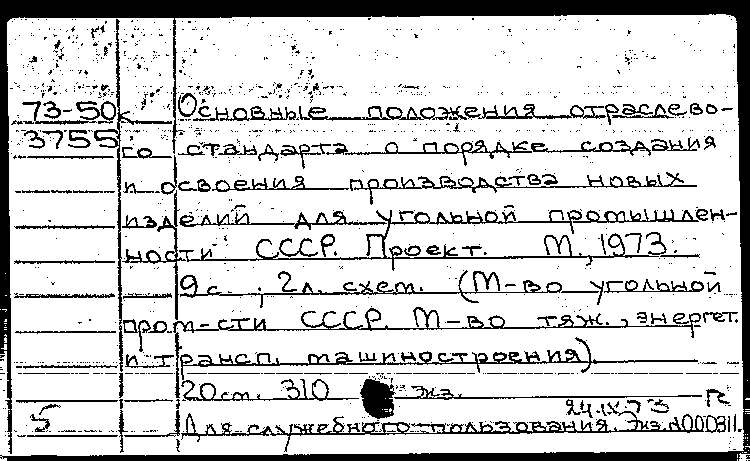 73-50к Основные положения отраслево-
3755 го стандарта о порядке создания
и освоения производства новых
изделий для угольной промышлен-
ности СССР. Проект. М., 1973.
9с.; 2л. схем. (М-во угольной
пром-сти СССР. М-во тяж., энергет.
и трансп. машиностроения).
20см. 310 экз.
24.IX.73
5 Для служебного пользования. Экз.№000311.